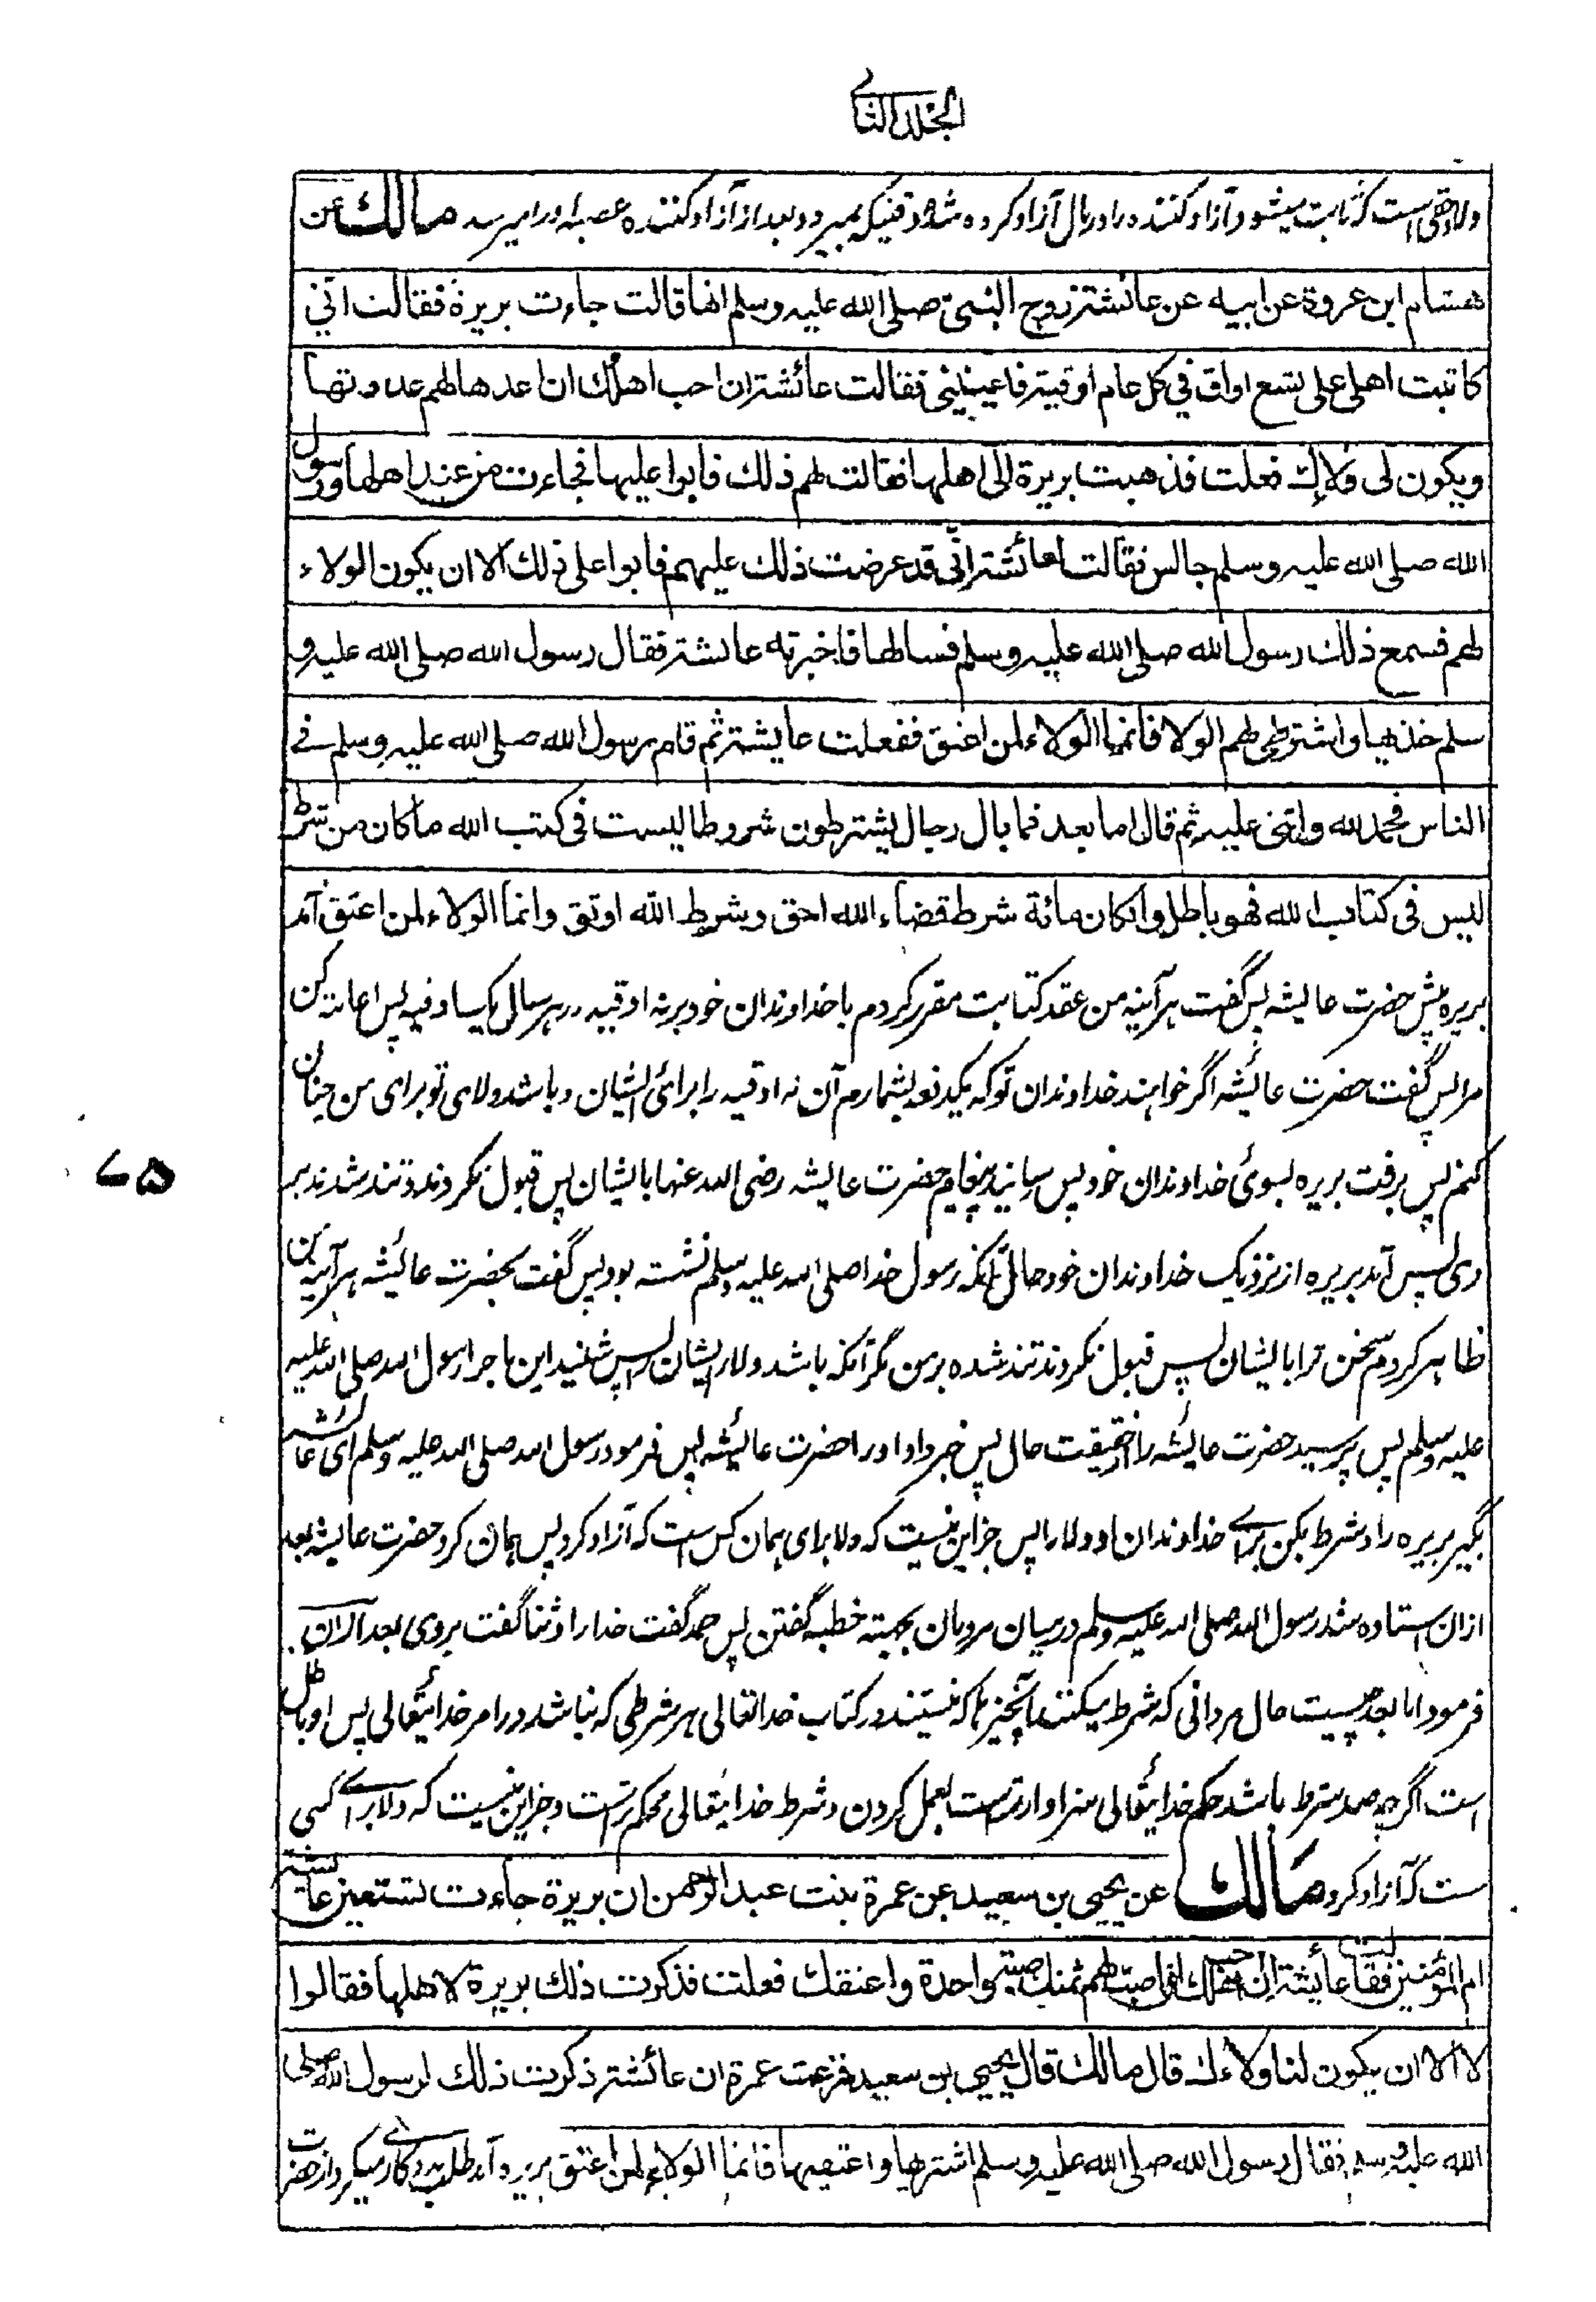 الجلد الثانی
ولا حقی است که ثابت میشود آزاد کننده را در مال آزاد کرده شده وقتیکه بمیرد و بعد از آزاد کننده عصبه او را میرسد مالك عن
هشام ابن عروة عن ابيه عن عائشة زوج النبيّ صلى الله عليه وسلم انها قالت جاءت بريرة فقالت انّي
كاتبت اهلي على تسع اواق في كل عام اوقية فاعينيني فقالت عائشة ان احب اهلك ان اعدها لهم عددتها
ويكون لى ولاءك فعلت فذهبت بريرة الى اهلها فقالت لهم ذلك فابوا عليها فجاءت من عند اهلها ورسول
الله صلى الله عليه وسلم جالس فقالت لعائشة انّي قد عرضت ذلك عليهم فابوا على ذلك الا ان يكون الولاء
لهم فسمع ذلك رسول الله صلى الله عليه وسلم فسالها فاخبرته عائشة فقال رسول الله صلى الله عليه و
سلم خذيها واشترطي لهم الولا فانما الولاء لمن اعتق ففعلت عايشة ثم قام رسول الله صلى الله عليه وسلم في
الناس فحمد الله واثنى عليه ثم قال اما بعد فما بال رجال يشترطون شروطا ليست في كتب الله ما كان من شرط
ليس في كتاب الله فهو باطل وان كان مائة شرط قضاء الله احق وشرط الله اوثق وانما الولاء لمن اعتق آمد
بریره پیش حضرت عایشه پس گفت هر آینه من عقد کتابت مقرر کردم با خداوندان خود بر نه اوقیه در هر سال یک اوقیه پس اعانت کن
مرا پس گفت حضرت عائشه اگر خواهند خداوندان تو که یکدفعه بشمارم آن نه اوقیه را برای ایشان و باشد ولای تو برای من چنان
کنم پس برفت بریره بسوئ خداوندان خود پس رسانید پیغام حضرت عایشه رضی الله عنها بایشان پس قبول نکردند و تند شدند بر
وی پس آمد بریره از نزدیک خداوندان خود حال آنکه رسول خدا صلی الله علیه وسلم نشسته بود پس گفت بحضرت عائشه هر آینه من
ظاهر کردم سخن ترا بایشان پس قبول نکردند تند شده بر من مگر آنکه باشد ولا ایشان را پس شنید این ماجرا رسول الله صلی الله علیه
علیه وسلم پس پرسید حضرت عایشه را از حقیقت حال پس خبر داد او را حضرت عائشه پس فرمود رسول الله صلی الله علیه وسلم ای عائشه
بگیر بریره را و شرط بکن برای خداوندان او ولا را پس جز این نیست که ولا برای همان کس است که آزاد کرد پس همان کرد حضرت عایشه بعد
ازان استاده شد رسول الله صلی الله علیه وسلم در میان مردمان بجهته خطبه گفتن پس حمد گفت خدا را و ثنا گفت بروی بعد ازان
فرمود اما بعد چیست حال مردانی که شرط میکنند آنچیز ها که نیستند در کتاب خدا تعالی هر شرطی که نباشد در امر خدایتعالی پس او باطل
است اگرچه صد شرط باشد حکم خدایتعالی سزاوار تر است بعمل کردن و شرط خدایتعالی محکم تر است و جز این نیست که ولا برای کسی
ست که آزاد کرد مالك عن يحيى بن سعيد عن عمرة بنت عبد الرحمن ان بريرة جاءت تستعين عائشة
ام المؤمنين فقالت عايشة ان احب اهلك ان اصب لهم ثمنك صبة واحدة واعتقك فعلت فذكرت ذلك بريرة لاهلها فقالوا
لا الا ان يكون لنا ولاءك قال مالك قال يحيى بن سعيد فزعمت عمرة ان عائشة ذكرت ذلك لرسول الله صلى
الله عليه وسلم فقال رسول الله صلى الله عليه وسلم اشتريها واعتقيها فانما الولاء لمن اعتق بریره آمد طلب مددگاری میکرد از حضرت